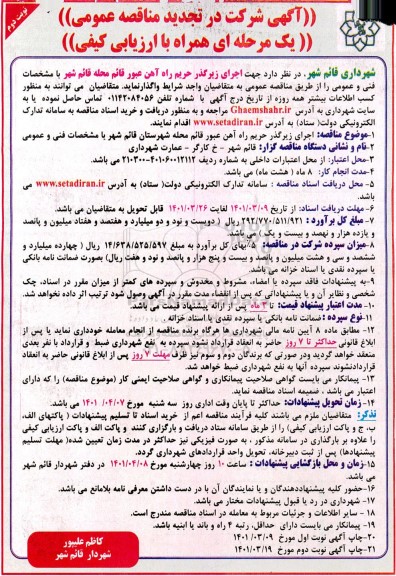 نوبت دوم
((آگهی شرکت در تجدید مناقصه عمومی))
((یک مرحله ای همراه با ارزیابی کیفی))
شهرداری قائم شهر، در نظر دارد جهت اجرای زیرگذر حریم راه آهن عبور قائم محله قائم شهر با مشخصات
فنی و عمومی را از طریق مناقصه عمومی به متقاضیان واجد شرایط واگذارنماید. متقاضیان می توانند به منظور
کسب اطلاعات بیشتر همه روزه از تاریخ درج آگهی با شماره تلفن ۰۱۱۴۲۰۸۴۰۵۶ تماس حاصل نموده یا به
سایت شهرداری به آدرس Ghaemshahr.ir مراجعه و به منظور دریافت و خرید اسناد مناقصه به سامانه تدارک
الکترونیکی دولت( ستاد) به آدرس www.setadiran.ir اقدام نمایند.
۱-موضوع مناقصه: اجرای زیرگذر حریم راه آهن عبور قائم محله شهرستان قائم شهر با مشخصات فنی و عمومی
۲-نام و نشانی دستگاه مناقصه گزار: قائم شهر - خ کارگر - عمارت شهرداری
۳-محل اعتبار: از محل اعتبارات داخلی به شماره ردیف ۲۱۰۳۰۰-۴۰۱۰۶۰۱۲۱۱۲ می باشد.
۴-مدت انجام کار: ۸ ماه ( هشت ماه) می باشد.
۵- محل دریافت اسناد مناقصه : سامانه تدارک الکترونیکی دولت( ستاد) به آدرس www.setadiran.ir می
باشد.
۶- مهلت دریافت اسناد: از تاریخ ۱۴۰۱/۰۳/۰۹ لغایت ۱۴۰۱/۰۳/۲۶ قابل تحویل به متقاضیان می باشد.
۷-مبلغ کل برآورد : ۲۹۲/۷۷۰/۵۱۱/۹۲۱ ریال ( دویست و نود و دو میلیارد و هفتصد و هفتاد میلیون و پانصد
و یازده هزار و نهصد و بیست و یک ) می باشد.
۸-میزان سپرده شرکت در مناقصه: ۵ %بهای کل برآورد به مبلغ ۱۴/۶۳۸/۵۲۵/۵۹۷ ریال ( چهارده میلیارد و
ششصد و سی و هشت میلیون و پانصد و بیست و پنج هزار و پانصد و نود و هفت ریال) بصورت ضمانت نامه بانکی
یا سپرده نقدی یا اسناد خزانه می باشد.
۹-به پیشنهادات فاقد سپرده یا امضاء، مشروط و مخدوش و سپرده های کمتر از میزان مقرر در اسناد، چک
شخصی و نظایر آن و یا پیشنهاداتی که پس از انقضاء مدت مقرر در آگهی وصول شود ترتیب اثر داده نخواهد شد.
۱۰-مدت اعتبار پیشنهاد قیمت: تا ۳ ماه پس از ارائه پیشنهاد قیمت می باشد.
۱۱-نوع سپرده : ضمانت نامه بانکی یا سپرده نقدی یا اسناد خزانه
۱۲- مطابق ماده ۸ آیین نامه مالی شهرداری ها هرگاه برنده مناقصه از انجام معامله خودداری نماید یا پس از
ابلاغ قانونی حداکثر تا ۷ روز حاضر به انعقاد قرارداد نشود سپرده به نفع شهرداری ضبط و قرارداد با نفر بعدی
منعقد خواهد گردید ودر صورتی که برندگان دوم و سوم نیز ظرف مهلت ۷ روز پس از ابلاغ قانونی حاضر به انعقاد
قراردادنشوند سپرده آنها به نفع شهرداری ضبط خواهد شد.
۱۳- پیمانکار می بایست گواهی صلاحیت پیمانکاری و گواهی صلاحیت ایمنی کار (موضوع مناقصه) را که دارای
اعتبار می باشد ، ضمیمه اسناد مناقصه نماید.
۱۴- زمان تحویل پیشنهادات: حداکثر تا پایان وقت اداری روز سه شنبه مورخ ۱۴۰۱ /۰۴/۰۷ می باشد.
تذکر: متقاضیان ملزم می باشند کلیه فرآیند مناقصه اعم از خرید اسناد تا تسلیم پیشنهادات ( پاکتهای الف،
ب، ج و پاکت ارزیابی کیفی) را از طریق سامانه ستاد دریافت و بارگزاری کنند و پاکت الف و پاکت ارزیابی کیفی
را علاوه بر بارگذاری در سامانه مذکور ، به صورت فیزیکی نیز حداکثر در مدت زمان تعیین شده( مهلت تسلیم
پیشنهادها) پس از ثبت دبیرخانه، تحویل واحد قراردادهای شهرداری گردد.
۱۵-زمان و محل بازگشایی پیشنهادات : ساعت ۱۰ روز چهارشنبه مورخ ۱۴۰۱/۰۴/۰۸ در دفتر شهردار قائم شهر
می باشد.
۱۶-حضور کلیه پیشنهاددهندگان و یا نمایندگان آن با در دست داشتن معرفی نامه بلامانع می باشد.
۱۷- شهرداری در رد یا قبول پیشنهادات مختار می باشد.
۱۸ - سایر اطلاعات و جزئیات مربوط به معامله در اسناد مناقصه مندرج است.
۱۹- پیمانکار می بایست دارای حداقل، رتبه ۴ راه و باند یا ابنیه باشد.
۲۰-چاپ آگهی نوبت اول مورخ ۱۴۰۱/۰۳/۰۹
۲۱-چاپ آگهی نوبت دوم مورخ ۱۴۰۱/۰۳/۱۹
کاظم علیپور
شهردار قائم شهر